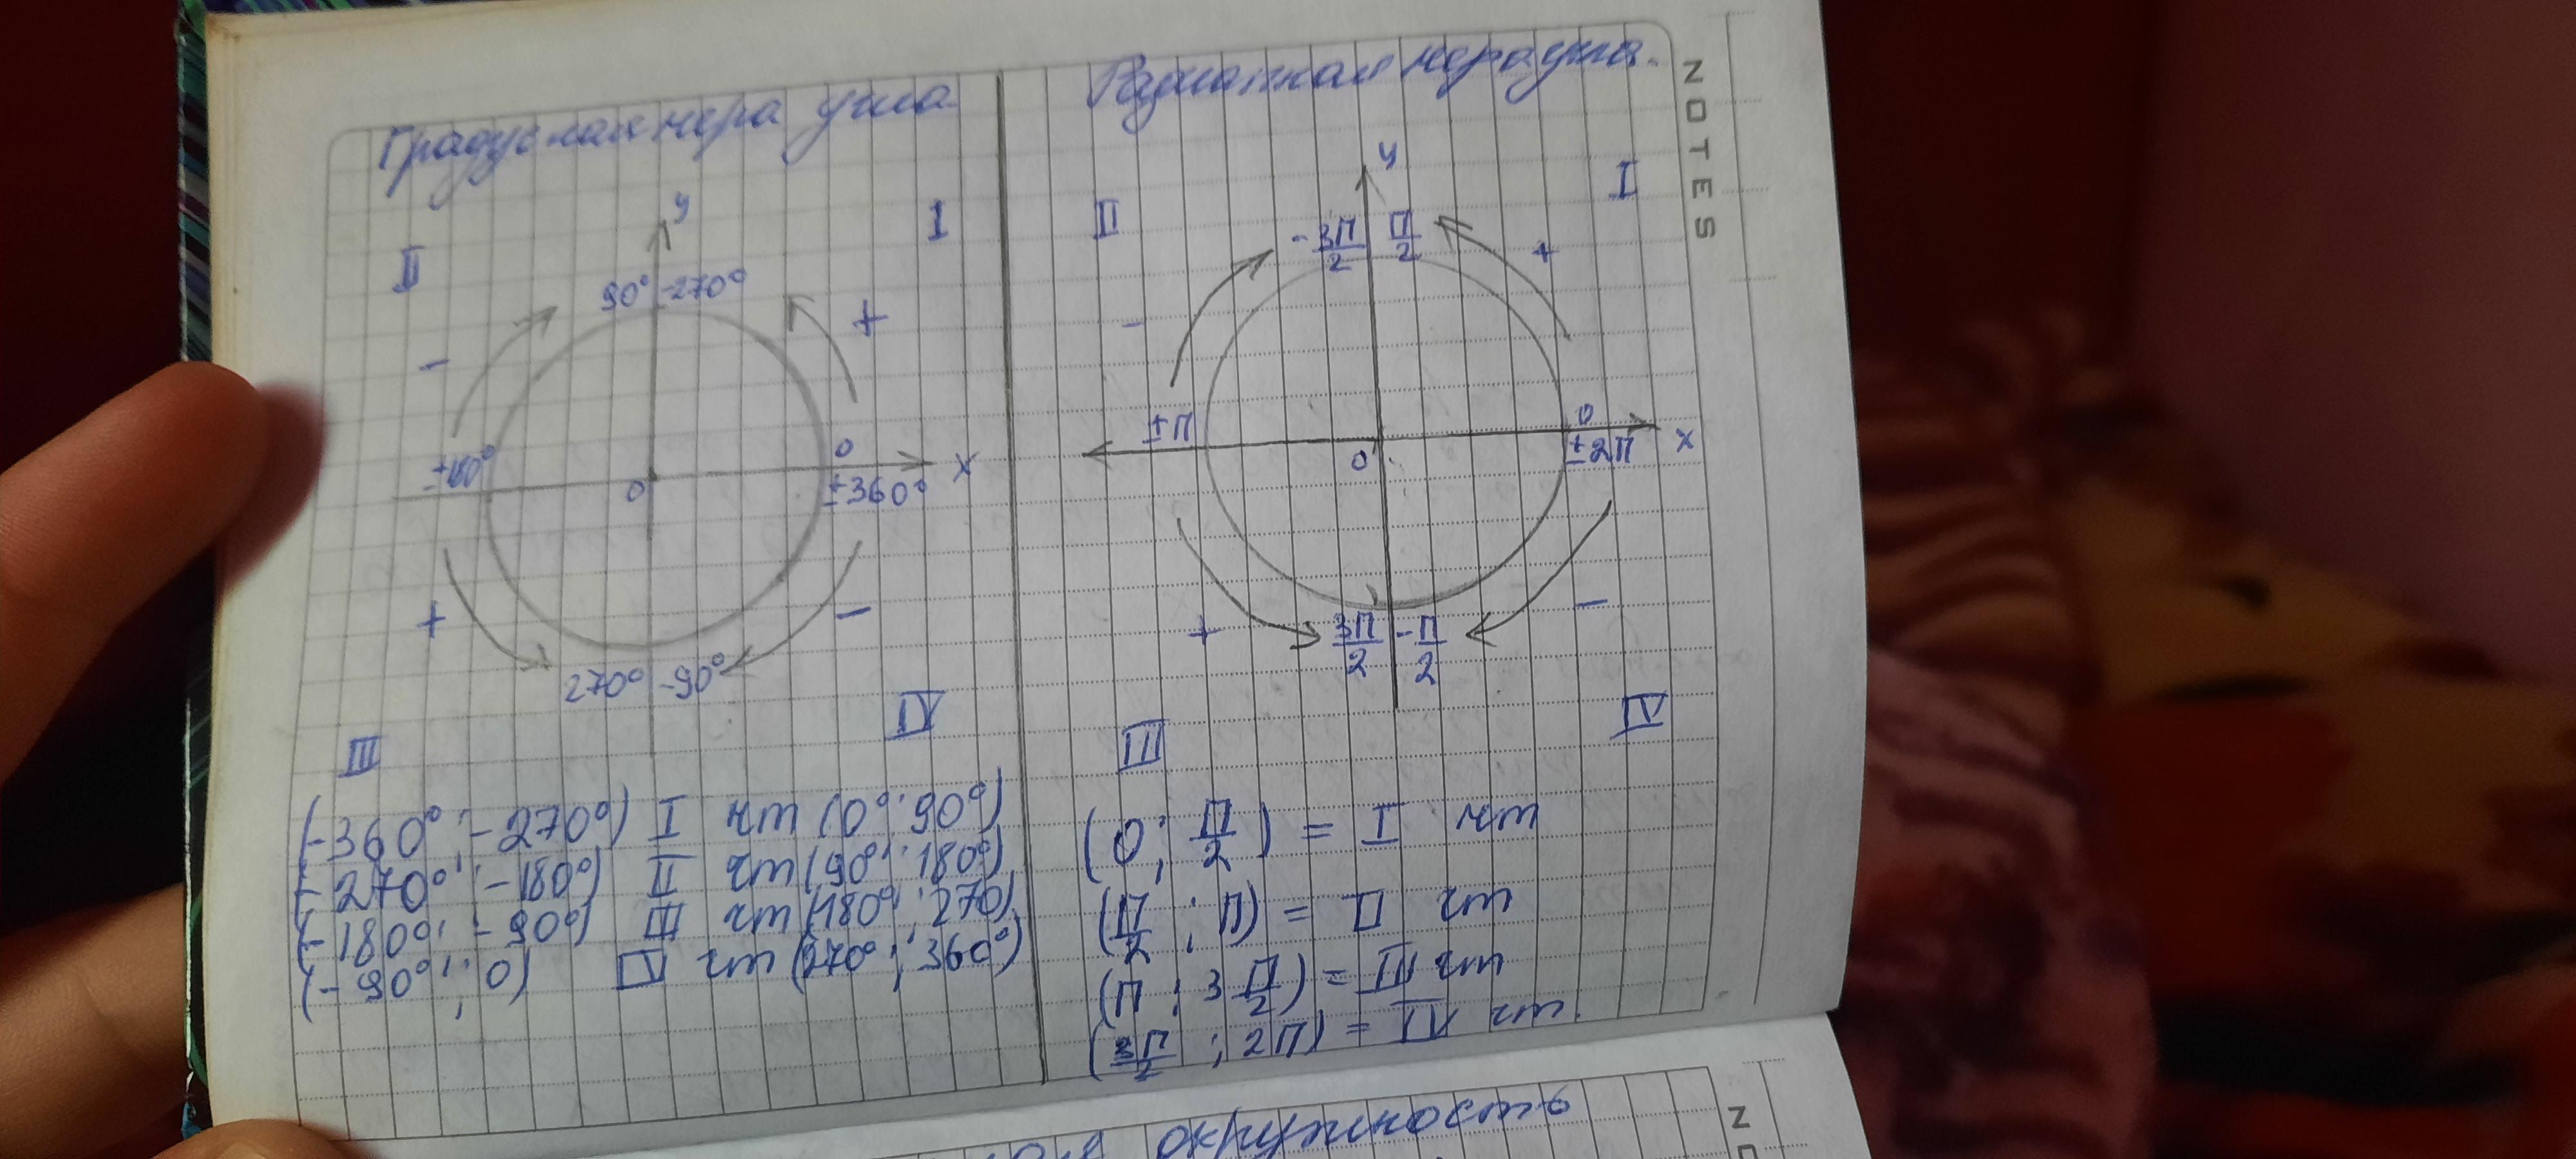 Градусная мера угла
y
I
II
90° -270°
+
-
±180°
0
0
±360°
x
+
-
270° -90°
III
IV
(-360°; -270°) I чт (0°; 90°)
(-270°; -180°) II чт (90°; 180°)
(-180°; -90°) III чт (180°; 270)
(-90°; 0) IV чт (270°; 360°)
Радианная мера угла.
y
I
II
-3П/2 П/2
+
-
±П
0
0
±2П
x
+
-
3П/2 -П/2
III
IV
(0; П/2) = I чт
(П/2; П) = II чт
(П; 3П/2) = III чт
(3П/2; 2П) = IV чт.
NOTES
окружность